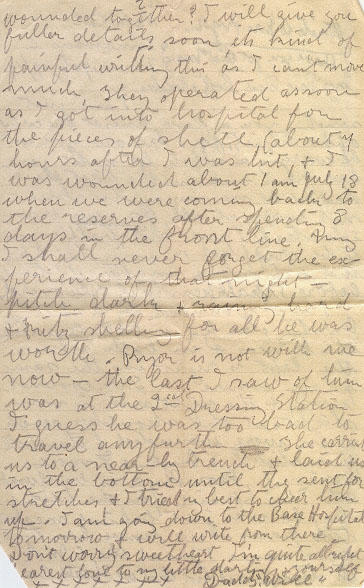 wounded together? I will give you
fuller details soon its kind of
painful writing this as I can't move
much, they operated assoon
as I got into hospital for
the pieces of shell, (about 4
hours after I was hit, & I
was wounded about 1 am July 18
when we were coming back to
the reserves after spending 8
days in the front line.
I shall never forget the ex-
perience of that night –
pitch dark & raining hard
& Fritz shelling for all he was
worth. Pryor is not with me
now – the last I saw of him
was at the 2nd Dressing Station
I guess he was too bad to
travel any further
us to a near-by trench & laid us
in the bottom until they sent for
stretchers & I tried my best to cheer him
up. I am going down to the Base Hospital
tomorrow & will write from there
Don't worry sweetheart, I'm quite alright
Dearest love to my little darlings & yourself
x x x x x